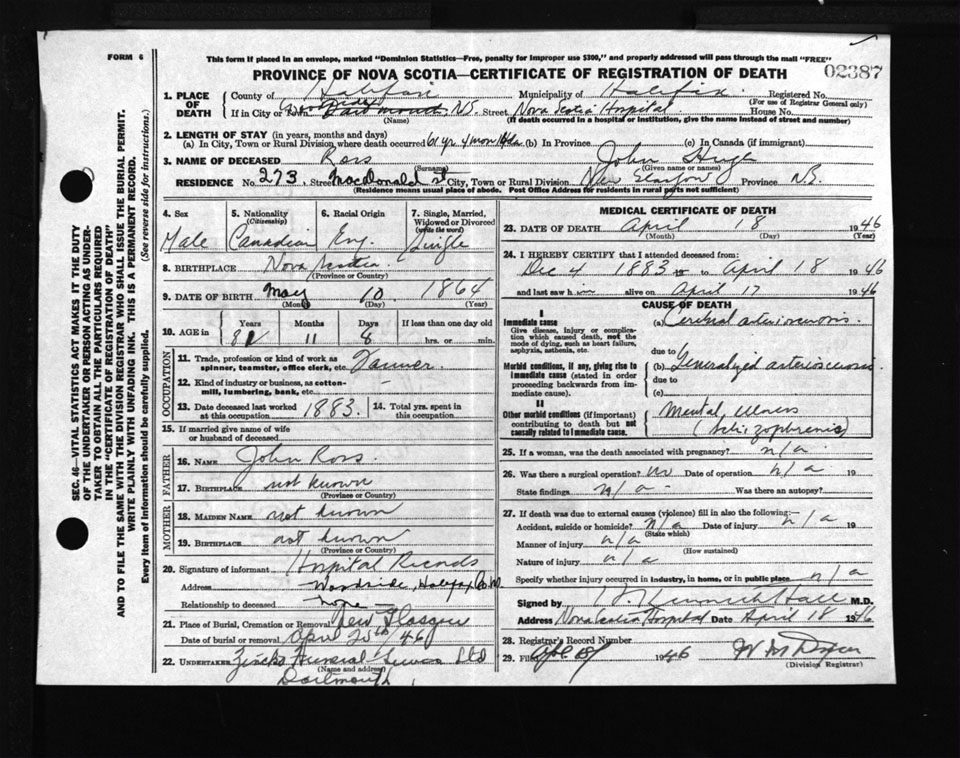 FORM 6
This form if placed in an envelope, marked "Dominion Statistics—Free, penalty for improper use $300," and properly addressed will pass through the mail "FREE"
02387
PROVINCE OF NOVA SCOTIA—CERTIFICATE OF REGISTRATION OF DEATH
SEC. 46—VITAL STATISTICS ACT MAKES IT THE DUTY
OF THE UNDERTAKER OR PERSON ACTING AS UNDER-
TAKER TO OBTAIN ALL THE PARTICULARS REQUIRED
IN THE "CERTIFICATE OF REGISTRATION OF DEATH"
AND TO FILE THE SAME WITH THE DIVISION REGISTRAR WHO SHALL ISSUE THE BURIAL PERMIT.
WRITE PLAINLY WITH UNFADING INK. THIS IS A PERMANENT RECORD.
Every item of information should be carefully supplied. (See reverse side for instructions.)
1. PLACE OF DEATH County of Halifax Municipality of Halifax Registered No.
(For use of Registrar General only)
If in City or Town Woodside Dartmouth, N.S. Street Nova Scotia Hospital House No.
(Name) (If death occurred in a hospital or institution, give the name instead of street and number)
2. LENGTH OF STAY (in years, months and days)
(a) In City, Town or Rural Division where death occurred 61 yr 4 mon 14 da (b) In Province (c) In Canada (if immigrant)
3. NAME OF DECEASED Ross John Hugh
(Surname) (Given name or names)
RESIDENCE No. 273, Street MacDonald St City, Town or Rural Division New Glasgow Province N.S.
(Residence means usual place of abode. Post Office Address for residents in rural parts not sufficient)
4. Sex 5. Nationality 6. Racial Origin 7. Single, Married,
(Citizenship) Widowed or Divorced
(write the word)
Male Canadian Eng. Single
8. BIRTHPLACE Nova Scotia
(Province or Country)
9. DATE OF BIRTH May 10 1864
(Month) (Day) (Year)
10. AGE in Years Months Days If less than one day old
81 11 8 hrs. or min.
OCCUPATION
11. Trade, profession or kind of work as
spinner, teamster, office clerk, etc.
12. Kind of industry or business, as cotton-
mill, lumbering, bank, etc. —
13. Date deceased last worked at this occupation 1883. 14. Total yrs. spent in this occupation
15. If married give name of wife
or husband of deceased
FATHER
16. NAME John Ross
17. BIRTHPLACE not known
(Province or Country)
MOTHER
18. MAIDEN NAME not known
19. BIRTHPLACE not known
(Province or Country)
20. Signature of informant Hospital Records
Address Woodside, Halifax Co. N.S.
Relationship to deceased none —
21. Place of Burial, Cremation or Removal New Glasgow
Date of burial or removal April 20th 46
22. UNDERTAKER Zinck's Funeral Service Ltd
(Name and address)
Dartmouth
MEDICAL CERTIFICATE OF DEATH
23. DATE OF DEATH April 18 1946
(Month) (Day) (Year)
24. I HEREBY CERTIFY that I attended deceased from:
Dec 4 1883 to April 18 1946
and last saw him alive on April 17 1946
CAUSE OF DEATH
I
Immediate cause
Give disease, injury or complica-
tion which caused death, not the
mode of dying, such as heart failure,
asphyxia, asthenia, etc.
(a) Cerebral arteriosclerosis.
due to
Morbid conditions, if any, giving rise to
immediate cause (stated in order
proceeding backwards from im-
mediate cause).
(b) Generalized arteriosclerosis
due to
(c)
II
Other morbid conditions (if important)
contributing to death but not
causally related to immediate cause.
Mental illness
(schizophrenia)
25. If a woman, was the death associated with pregnancy? n/a
26. Was there a surgical operation? no Date of operation n/a 19
State findings n/a - Was there an autopsy?
27. If death was due to external causes (violence) fill in also the following:—
Accident, suicide or homicide? n/a Date of injury n/a 19
(State which)
Manner of injury n/a
(How sustained)
Nature of injury n/a
Specify whether injury occurred in industry, in home, or in public place. n/a
Signed by Hall M.D.
Address Nova Scotia Hospital Date April 18 1946
28. Registrar's Record Number
29. Filed 1946 W M
(Division Registrar)